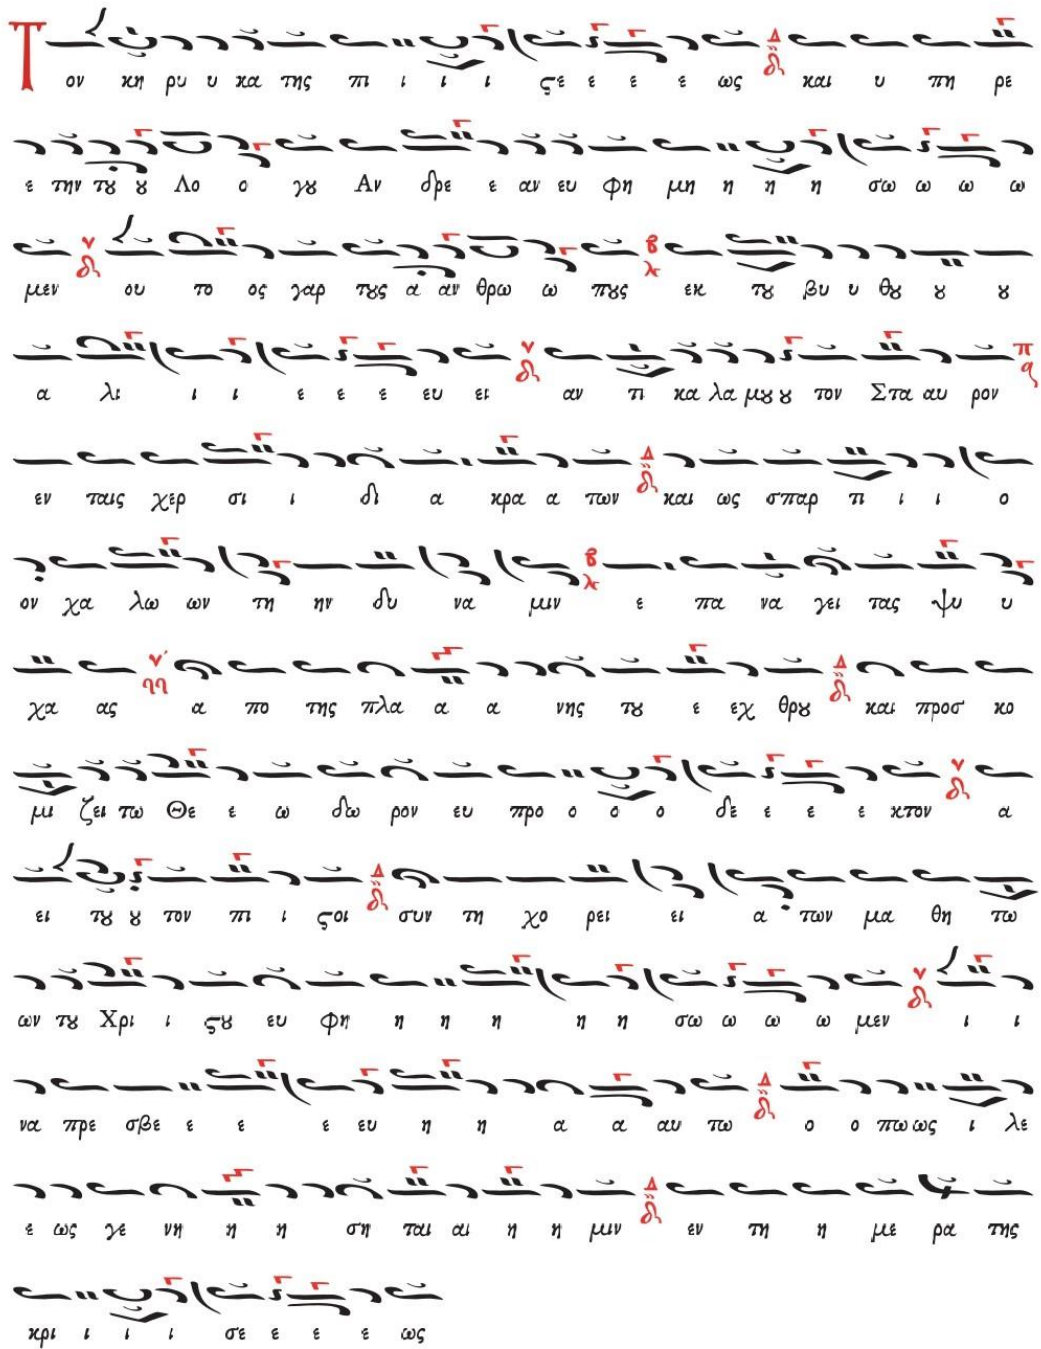 Τ ον κη ρυ υ κα της πι ι ι ι ϛε ε ε ε ως και υ πη ρε
ε την τȣ ȣ Λο ο γȣ Αν δρε ε αν ευ φη μη η η η σω ω ω ω
μεν ου το ος γαρ τȣς α αν θρω ω πȣς εκ τȣ βυ υ θȣ ȣ ȣ
α λι ι ι ε ε ε ευ ει αν τι κα λα μȣ ȣ τον Στα αυ ρον
εν ταις χερ σι ι δι α κρα α των και ως σπαρ τι ι ι ο
ον χα λω ων τη ην δυ να μιν ε πα να γει τας ψυ υ
χα ας α πο της πλα α α νης τȣ ε εχ θρȣ και προσ κο
μι ζει τω Θε ε ω δω ρον ευ προ ο ο ο δε ε ε ε κτον α
ει τȣ ȣ τον πι ι ϛοι συν τη χο ρει ει α των μα θη τω
ων τȣ Χρι ι ϛȣ ευ φη η η η η η σω ω ω ω μεν ι ι
να πρε σβε ε ε ε ευ η η α α αυ τω ο ο πω ως ι λε
ε ως γε νη η η ση ται αι η η μιν εν τη η με ρα της
κρι ι ι ι σε ε ε ε ως